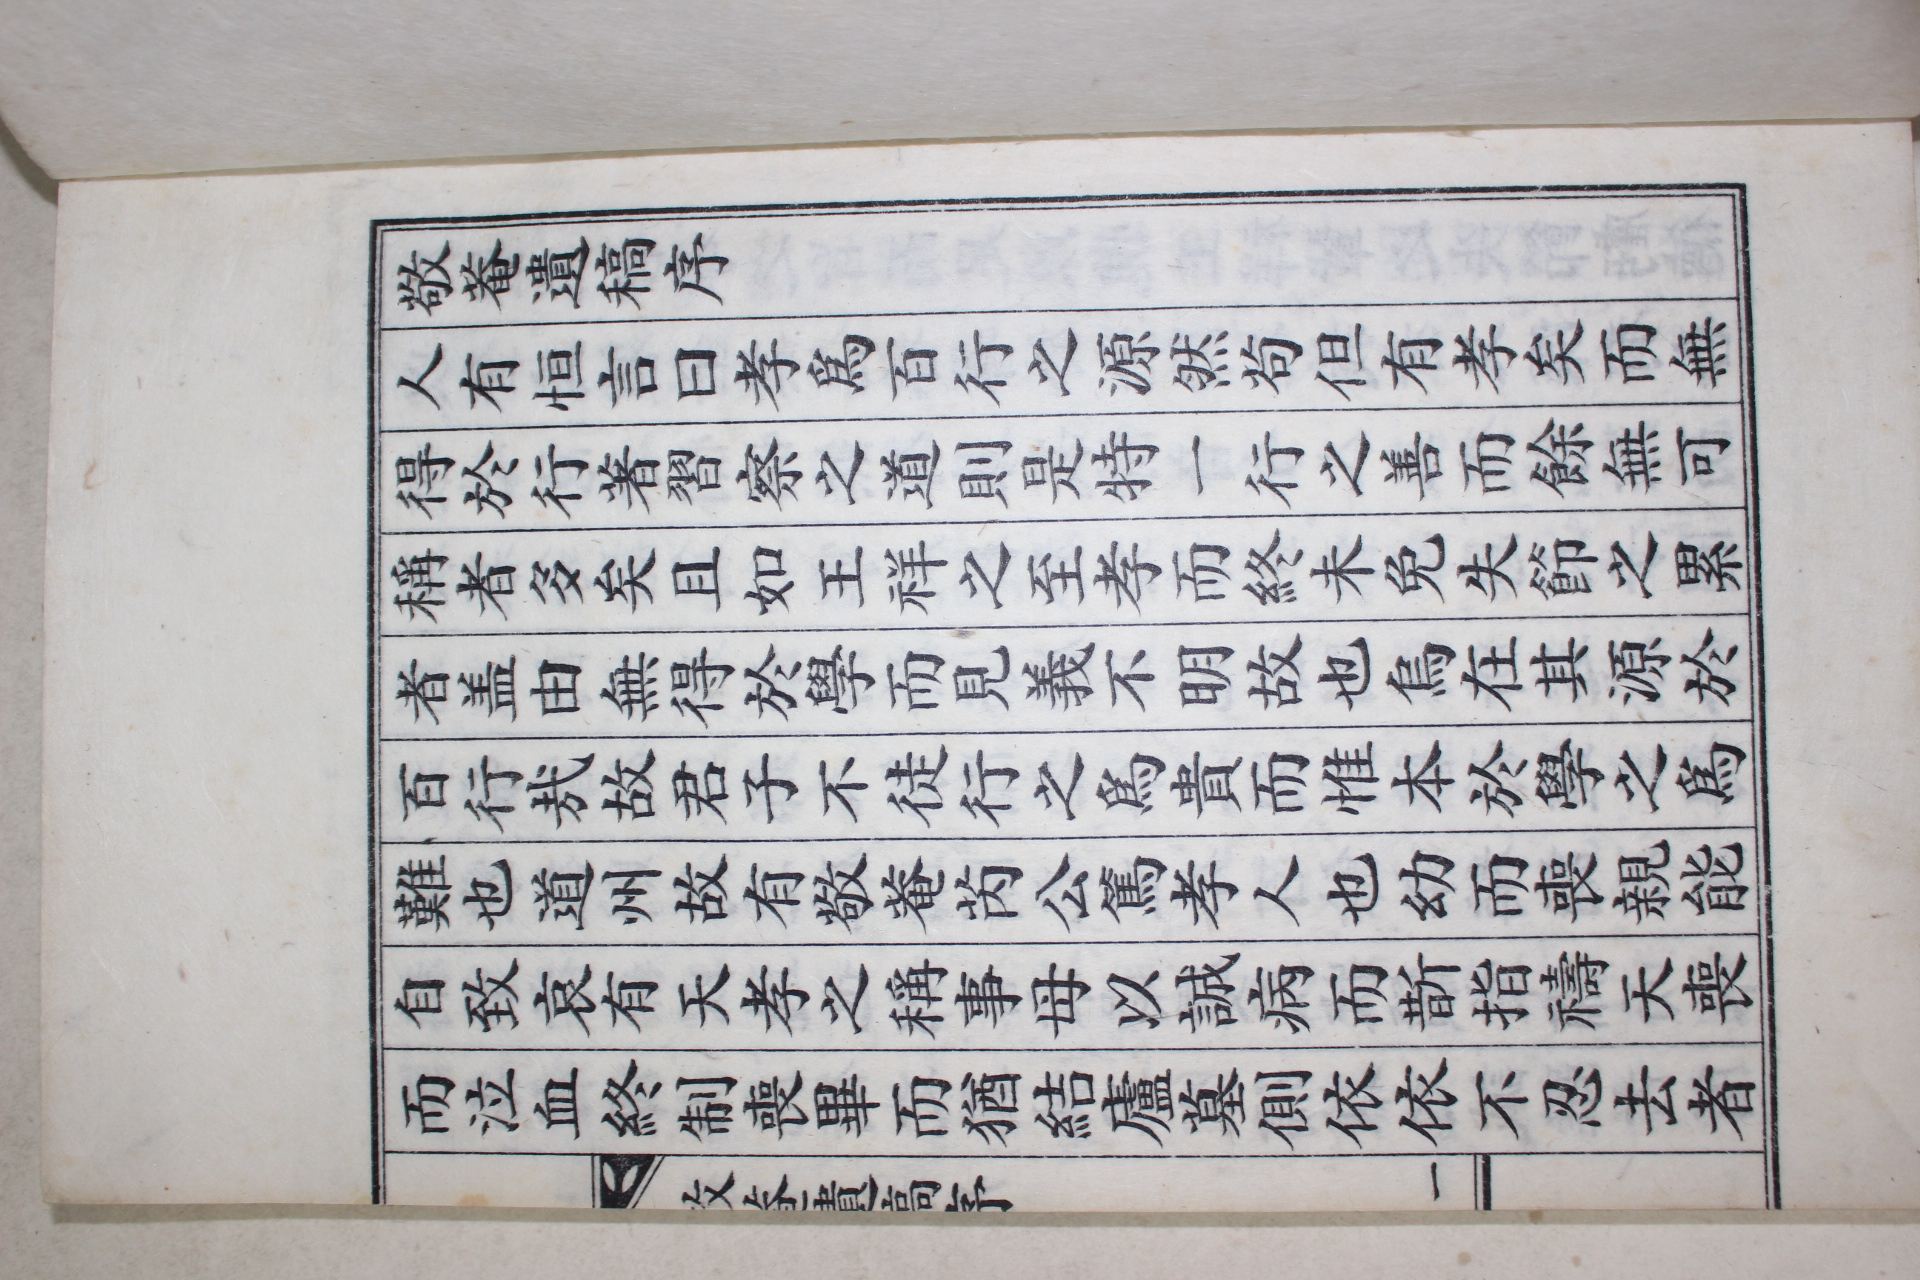 敬菴遺稿序
人有恒言曰孝爲百行之源然苟但有孝矣而無
得於行著習察之道則是特一行之善而餘無可
稱者多矣且如王祥之至孝而終未免失節之累
者盖由無得於學而見義不明故也烏在其源於
百行哉故君子不徒行之爲貴而惟本於學之爲
難也道州故有敬菴芮公篤孝人也幼而喪親能
自致哀有天孝之稱事母以誠病而斮指禱天喪
而泣血終制喪畢而猶結廬墓側依依不忍去者
敬菴遺稿序 一